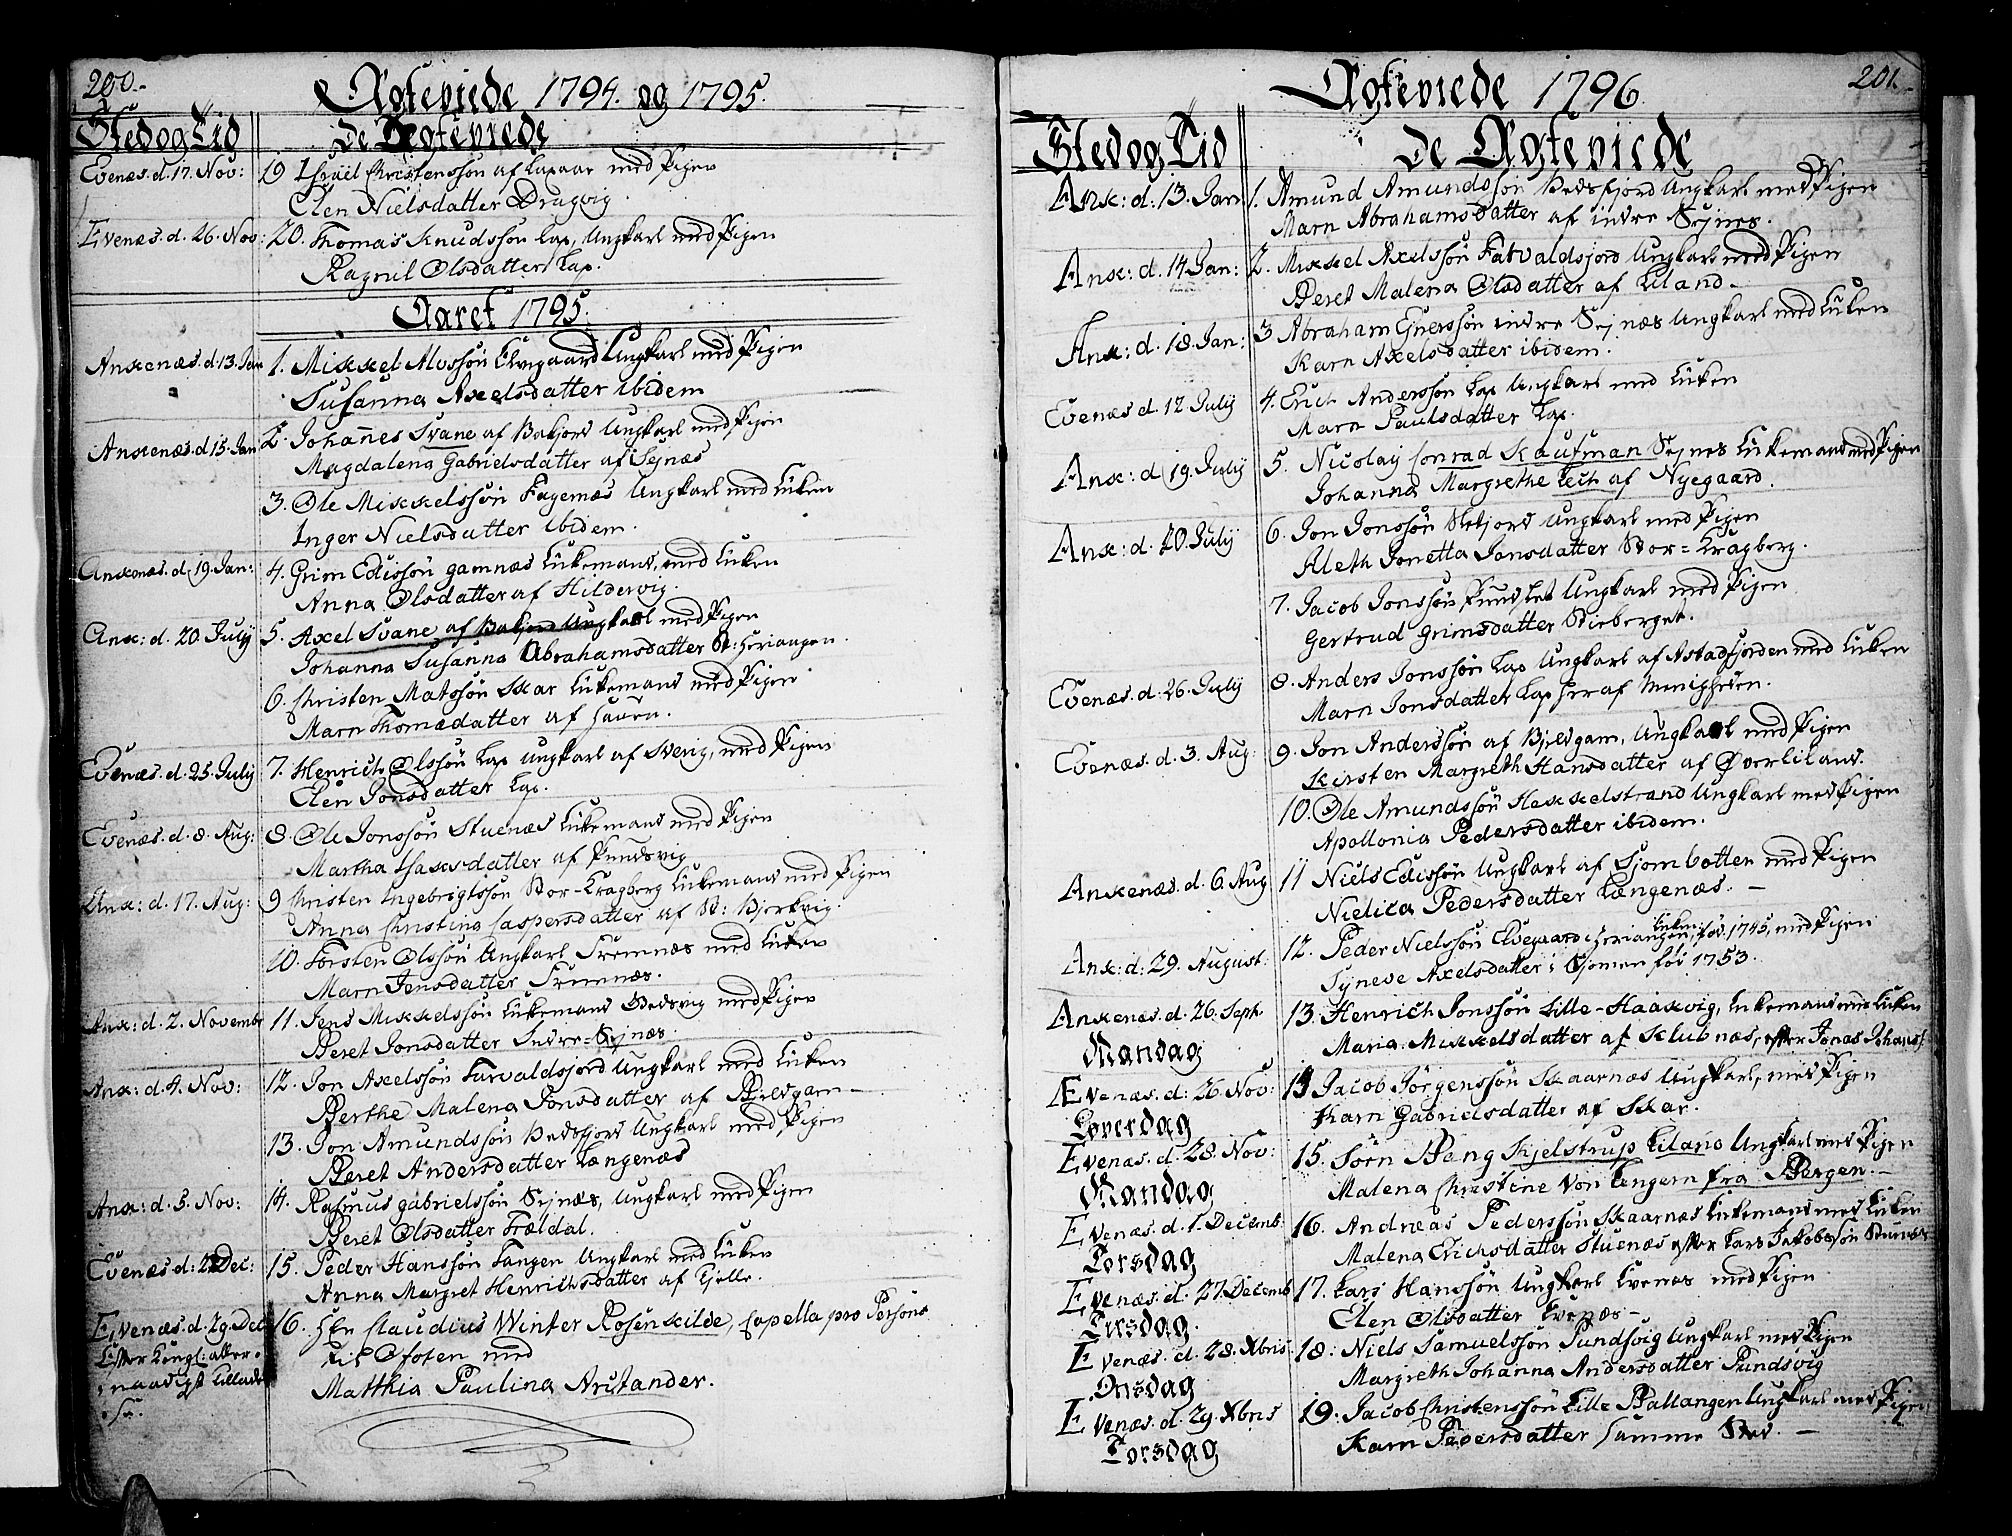 200.
Ægteviede 1794. og 1795.
Sted og Tid
De Ægteviede
Evenæs. d. 17. Nov: 19 Israel Christenssön af Lapaar med Pigen
Elen Nielsdatter Dragvig
Evenæs. d. 26. Nov: 20. Thomas Knudssön Lap, Ungkarl med Pigen
Ragnil Olsdatter Lap.
Aaret 1795.
Ankenæs. d. 13. Jan 1. Mikkel Alvssön Elvegaard Ungkarl med Pigen
Susanna Axelsdatter ibidem
Ankenæs. d. 15. Jan 2. Johannes Svane af Bokjord Ungkarl med Pigen
Magdalena Gabrielsdatter af Sejnæs
3. Ole Mikkelssön Fagernæs Ungkarl med Enken
Inger Nielsdatter ibidem.
Ankenæs. d. 19. Jan: 4. Grim Edissön gamnæs Enkemand, med Enken
Anna Olsdatter af Hildervig
Ank: d. 20. July 5. Axel Svane af Bokjord Ungkarl med Pigen
Johanna Susanna Abrahamsdatter St: Heriangen.
6. Christen Matssön Skar Enkemand med Pigen
Marn Thomædatter af
Evenæs. d. 25. July 7. Henrich Olssön Lap Ungkarl af Sverig, med Pigen
Elen Jonsdatter Lap.
Evenæs. d. 8. Aug: 8. Ole Jonssön Stuenæs Enkemand med Pigen
Martha Isaksdatter af Pundsvig
Ank: d. 17. Aug: 9 Christen Ingebrigtssön Stor-Kragberg Enkemand med Pigen
Anna Christina Caspersdatter af St: Bjerkvig.
10. Torsten Olssön Ungkarl med Enken
Marn Jensdatter
Ank: d. 2. Novembr 11. Jens Mikkelssön Enkemand med Pigen
Beret Jonsdatter Indre-Sejnæs.
Ank: d. 4. Nov: 12. Jon Axelssön Farvaldsjord Ungkarl med Enken
Berthe Malena Jonsdatter af
13. Jon Amundssön Ungkarl med Pigen
Beret Andersdatter Længenæs
Ank: d. 5. Nov: 14. Rasmus Gabrielssön Sejnæs, Ungkarl med Pigen
Beret Olsdatter Trældal.
Evenæs d: Dec: 15. Peder Hanssön Tangen Ungkarl med Enken
Anna Margret Henrichsdatter af
Evenæs. d. 29. Dec 16. Hr Claudius Winter Rosenkilde, Capella pro Persona
Efter Kongl: aller-
til Ofoten med
naadigst Tillade
Matthia Paulina Arctander.
201.
Ægteviede 1796.
Sted og Tid
De Ægteviede
Ank: d. 13. Jan 1. Amund Amundssön Ungkarl med Pigen
Marn Abrahamsdatter af indre Sejnes.
Ank: d. 14 Jan: 2. Mikkel Axelssön Farvaldsjord Ungkarl med Pigen
Beret Malena Olsdatter af Liland.
Ank: d. 18. Jan: 3 Abraham Enerssön indre Sejnæs Ungkarl med Enken
Karn Axelsdatter ibidem.
Evenæs d. 12 July 4. Erich Anderssön Lap Ungkarl med Enken
Marn Paulsdatter Lap.
Ank: d. 19. July 5. Nicolay Conrad Kaufman Sejnes Enkemand med Pigen
Johanna Margrethe Lech af Nyegaard.
Ank: d. 20. July 6. Jon Jonssön Ungkarl med Pigen
Aleth Jonetta Jonsdatter Stor-Kragberg.
7. Jacob Jonssön Ungkarl med Pigen
Gertrud Grimsdatter Stieberget.
Evenæs. d. 26. July 8. Anders Jonssön Lap Ungkarl af Astadfjorden med Enken
Marn Jonsdatter Lap her af Menigheden.
Evenæs. d. 3. Aug. 9. Jon Anderssön af Ungkarl med Pigen
Kirsten Margreth Hansdatter af Överliland.
10. Ole Amundssön Hekkelstrand Ungkarl med Pigen
Apollonia Pedersdatter ibidem.
Ankenæs. d. 6. Aug 11 Niels Edissön Ungkarl af Sjombotten med Pigen
Nielica Pedersdatter Længenæs.
Ank: d: 29. August: 12. Peder Nielssön Elvegaard i Heriangen, Enkem: föd. 1745, med Pigen
Syneve Axelsdatter i Sjomen föd 1753.
Ankenæs. d. 26. Sept. 13. Henrich Jonssön Lille-Haakvig, Enkemand med Enken
Mandag
Maria Mikkelsdatter af Klubnæs, efter Jonas Johanss.
Evenæs. d: 26. Nov: 13 Jacob Jörgenssön Skaarnæs Ungkarl, med Pigen
Löverdag
Karn Gabrielsdatter af Skar.
Evenæs. d. 28. Nov: 15. Sörn Bang Kjelstrup Liland Ungkarl med Pigen
Mandag
Malena Christine von Tangern fra Bergen.
Evenæs. d. 1. Decemb: 16. Andreas Pederssön Skaarnæs Enkemand med Enken
Torsdag
Malena Erichsdatter Stuenæs efter Lars Jakobssön
Evenæs. d. 27. Decemb 17. Lars Hanssön Ungkarl Evenæs med Pigen
Tirsdag.
Elen Olsdatter Evenæs
Evenæs. d. 28. Xbris 18: Niels Samuelssön Pundsvig Ungkarl med Pigen
Onsdag
Margreth Johanna Andersdatter Pundsvig
Evenæs. d. 29. Xbris 19: Jacob Christenssön Lille Ballangen Ungkarl med Pigen
Torsdag
Karn Pedersdatter samme Sted.